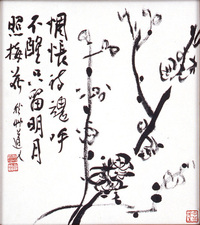 惆悵詩魂呼
不醒只留明月
照梅花
道人